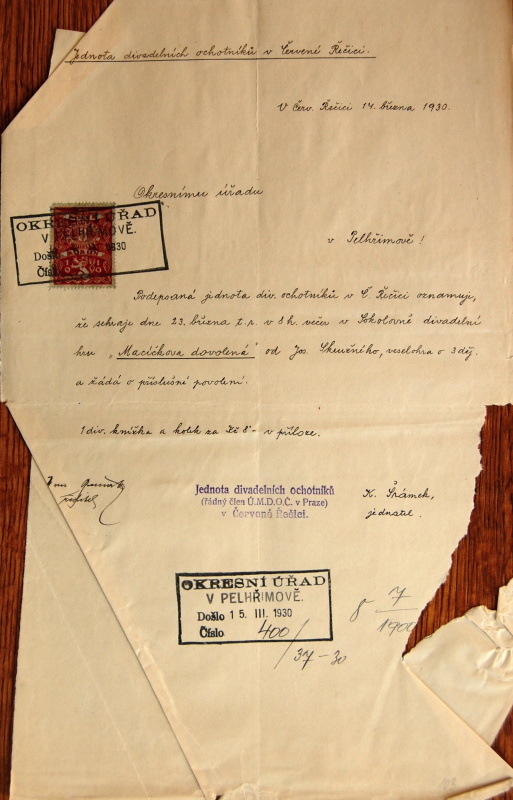 Jednota divadelních ochotníků v Červené Řečici.
V Červ. Řečici 14. března 1930.
Okresnímu úřadu
OKRESNÍ ÚŘAD
V PELHŘIMOVĚ.
Došlo 1930
Číslo
v Pelhřimově!
Podepsaná jednota div. ochotníků v Č. Řečici oznamuje,
že sehraje dne 23. března t. r. v 8 h. večer v Sokolovně divadelní
hru „Macíčkova dovolená" od Jos. Skružného, veselohra o 3 děj.
a žádá o příslušné povolení.
1 div. knížka a kolek za Kč 8·- v příloze.
ředitel
Jednota divadelních ochotníků
(řádný člen Ú.M.D.O.Č. v Praze)
v Červené Řečici.
K. Šrámek,
jednatel.
OKRESNÍ ÚŘAD
V PELHŘIMOVĚ.
Došlo 15. III. 1930
Číslo 400/
37-30
8 7/